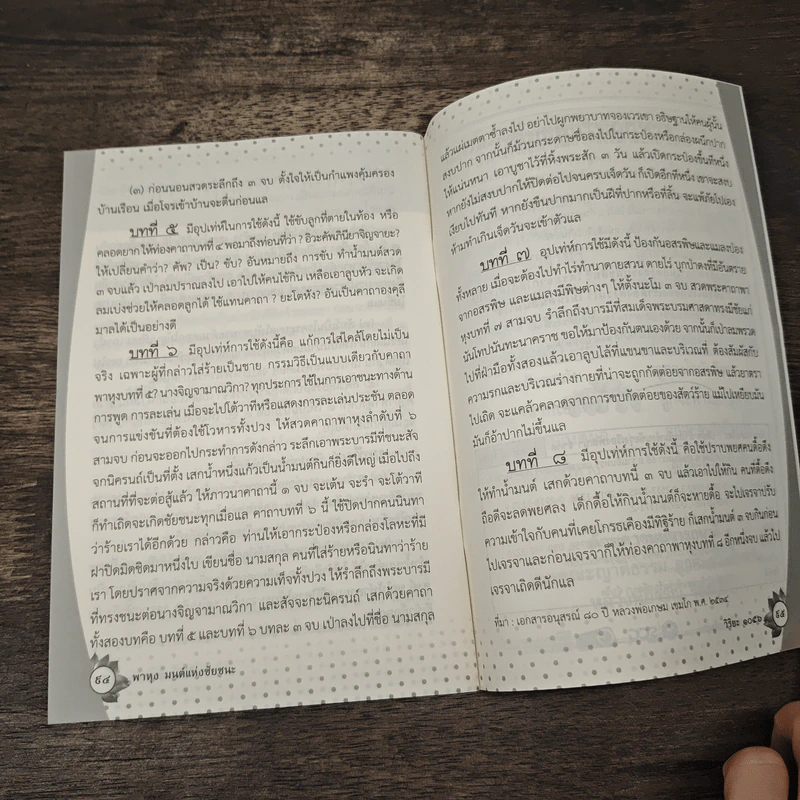 (๓) ก่อนนอนสวดระลึกถึง ๓ จบ ตั้งใจให้เป็นกำแพงคุ้มครอง
บ้านเรือน เมื่อโจรเข้าบ้านจะตื่นก่อนแล
บทที่ ๕ มีอุปเท่ห์ในการใช้ดังนี้ ใช้ขับลูกที่ตายในท้อง หรือ
คลอดยาก ให้ท่องคาถาบทที่ ๔ พอมาถึงท่อนที่ว่า ? อิวะคัพภินียาจิญจายะ?
ให้เปลี่ยนคำว่า? คัพ? เป็น? ขับ? อันหมายถึง การขับ ทำน้ำมนต์สวด
๓ จบแล้ว เป่าลมปราณลงไป เอาไปให้คนไข้กิน เหลือเอาลูบหัว จะเกิด
ลมเบ่งช่วยให้คลอดลูกได้ ใช้แทนคาถา ? ยะโตหัง? อันเป็นคาถาองคุลี
มาลได้เป็นอย่างดี
บทที่ ๖ มีอุปเท่ห์การใช้ดังนี้คือ แก้การใส่ไคล้โดยไม่เป็น
จริง เฉพาะผู้ที่กล่าวใส่ร้ายเป็นชาย กรรมวิธีเป็นแบบเดียวกับคาถา
พาหุงบทที่ ๕? นางจิญจามาณวิกา? ทุกประการ ใช้ในการเอาชนะทางด้าน
การพูด การละเล่น เมื่อจะไปโต้วาทีหรือแสดงการละเล่นประชัน ตลอด
จนการแข่งขันที่ต้องใช้โวหารทั้งปวง ให้สวดคาถาพาหุงลำดับที่ ๖
สามจบ ก่อนจะออกไปกระทำการดังกล่าว ระลึกเอาพระบารมีที่ชนะสัจ
จกนิครนถ์เป็นที่ตั้ง เสกน้ำหนึ่งแก้วเป็นน้ำมนต์กินก็ยิ่งดีใหญ่ เมื่อไปถึง
สถานที่ที่จะต่อสู้แล้ว ให้ภาวนาคาถานี้ ๑ จบ จะเต้น จะรำ จะโต้วาที
ก็ทำเถิดจะเกิดชัยชนะทุกเมื่อแล คาถาบทที่ ๖ นี้ ใช้ปิดปากคนนินทา
ว่าร้ายเราได้อีกด้วย กล่าวคือ ท่านให้เอากระป๋องหรือกล่องโลหะที่มี
ฝาปิดมิดชิดมาหนึ่งใบ เขียนชื่อ นามสกุล คนที่ใส่ร้ายหรือนินทาว่าร้าย
เรา โดยปราศจากความจริงด้วยความเท็จทั้งปวง ให้รำลึกถึงพระบารมี
ที่ทรงชนะต่อนางจิญจามาณวิกา และสัจจะกะนิครนถ์ เสกด้วยคาถา
ทั้งสองบทคือ บทที่ ๕ และบทที่ ๖ บทละ ๓ จบ เป่าลงไปที่ชื่อ นามสกุล
๙๔ พาหุง มนต์แห่งชัยชนะ
แล้วแผ่เมตตาซ้ำลงไป อย่าไปผูกพยาบาทจองเวรเขา อธิษฐานให้คนผู้นั้น
สงบปาก จากนั้นก็ม้วนกระดาษชื่อลงไปในกระป๋องหรือกล่องผนึกปาก
ให้แน่นหนา เอาบูชาไว้ที่หิ้งพระสัก ๓ วัน แล้วเปิดกระป๋องขึ้นทีหนึ่ง
หากยังไม่สงบปากให้ปิดต่อไปจนครบเจ็ดวัน ก็เปิดอีกทีหนึ่ง เขาจะสงบ
เงียบไปทันที หากยังขืนปากมากเป็นฝีที่ปากหรือที่ลิ้น จะแพ้ภัยไปเอง
ห้ามทำเกินเจ็ดวันจะเข้าตัวแล
บทที่ ๗ อุปเท่ห์การใช้มีดังนี้ ป้องกันอสรพิษและแมลงป่อง
ทั้งหลาย เมื่อจะต้องไปทำไร่ทำนาดายสวน ดายไร่ บุกป่าดงที่มีอันตราย
จากอสรพิษ และแมลงมีพิษต่างๆ ให้ตั้งนะโม ๓ จบ สวดพระคาถาพา
หุงบทที่ ๗ สามจบ รำลึกถึงบารมีที่สมเด็จพระบรมศาสดาทรงมีชัยแก่
นันโทปนันทะนาคราช ขอให้มาป้องกันตนเองด้วย จากนั้นก็เป่าลมพรวด
ไปที่ฝ่ามือทั้งสองแล้วเอาลูบไล้ที่แขนขาและบริเวณที่ ต้องสัมผัสกับ
ความรกและบริเวณร่างกายที่น่าจะถูกกัดต่อยจากอสรพิษ แล้วยาตรา
ไปเถิด จะแคล้วคลาดจากการขบกัดต่อยของสัตว์ร้าย แม้ไปเหยียบมัน
มันก็อ้าปากไม่ขึ้นแล
บทที่ ๘ มีอุปเท่ห์การใช้ดังนี้ คือใช้ปราบพยศคนดื้อดึง
ให้ทำน้ำมนต์ เสกด้วยคาถาบทนี้ ๓ จบ แล้วเอาไปให้กิน คนที่ดื้อดึง
ถือดีจะลดพยศลง เด็กดื้อให้กินน้ำมนต์ก็จะหายดื้อ จะไปเจรจาปรับ
ความเข้าใจกับคนที่เคยโกรธเคืองมีทิฐิร้าย ก็เสกน้ำมนต์ ๓ จบกินก่อน
ไปเจรจาและก่อนเจรจาก็ให้ท่องคาถาพาหุงบทที่ ๘ อีกหนึ่งจบ แล้วไป
เจรจาเถิดดีนักแล
ที่มา : เอกสารอนุสรณ์ ๘๐ ปี หลวงพ่อเกษม เขมโก พ.ศ. ๒๕๓๔
วิริยะ ๑๐๕๖ ๙๕